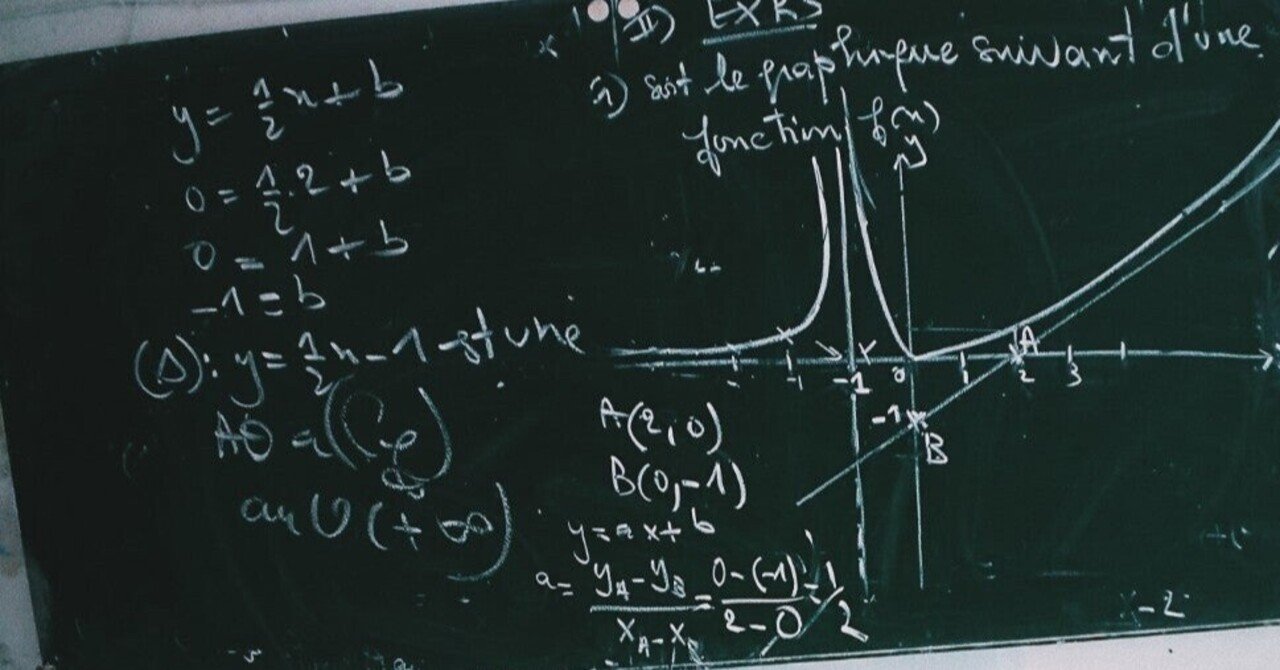 II) EXRS
1) soit le graphique suivant d'une
fonction f(x)
y
A
-1 0 1 2 3
-1
B
y = 1/2 x + b
0 = 1/2 . 2 + b
0 = 1 + b
-1 = b
(Δ): y = 1/2 x - 1 est une
AO à (Cf)
au V(+∞)
A(2,0)
B(0,-1)
y = ax + b
a = (yA - yB)/(xA - xB) = (0-(-1))/(2-0) = 1/2